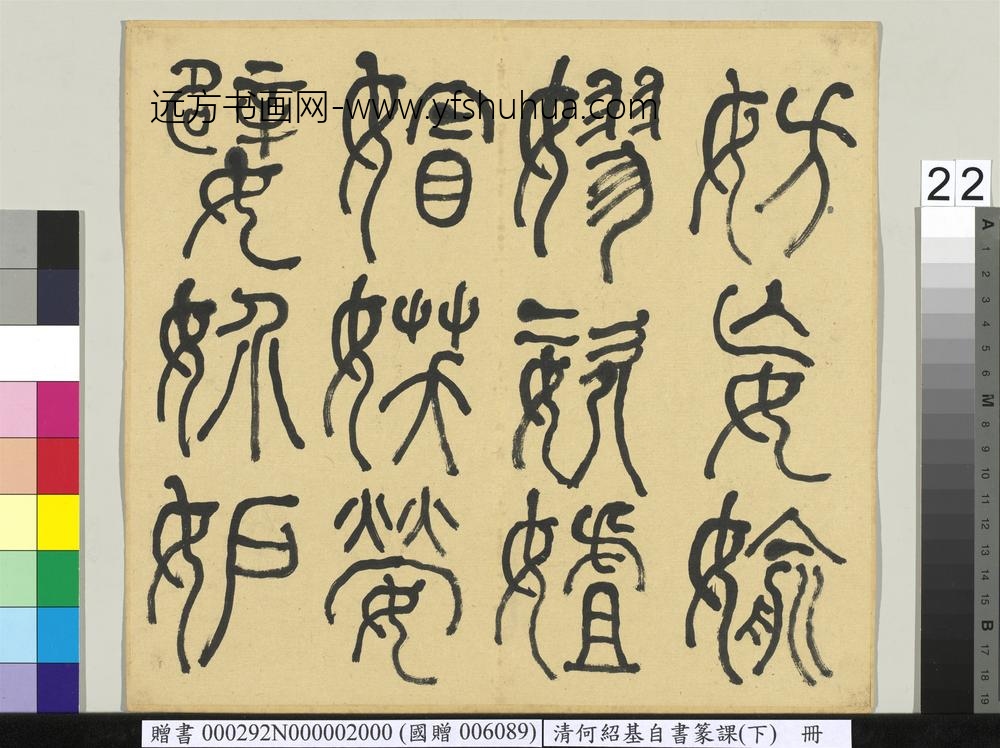 妨妄媮
嫪姿㜘
媢嫈
嬖妎妒
远方书画网-www.yfshuhua.com
22
A 1 2 3 4 5 6 M 8 9 10 11 12 13 14 15 B 17 18 19
贈書 000292N000002000 (國贈 006089)
清何紹基自書篆課(下) 冊